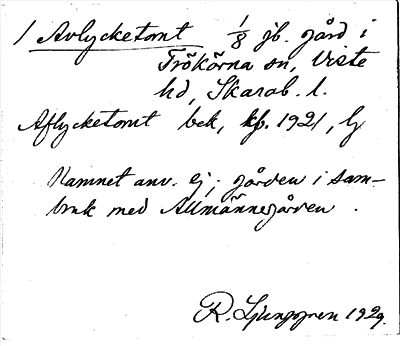 1 Avlycketomt 1/8 jb. gård i
Trökörna sn, Viste
hd, Skarab. l.
Aflycketomt bek, kb. 1921, lj
Namnet anv. ej; gården i sam-
bruk med Allmännegården.
R. Ljunggren 1929.